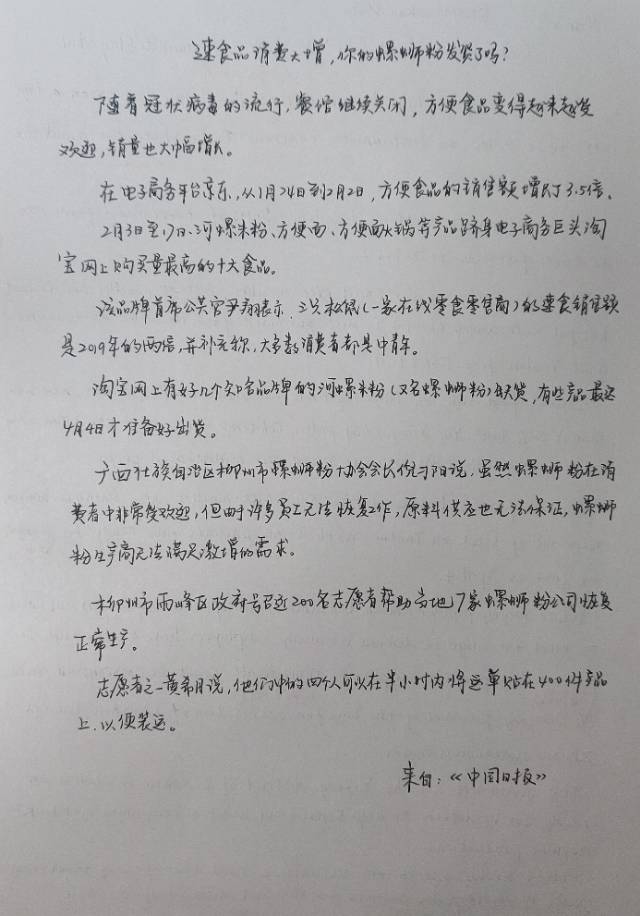 速食品消费大增，你的螺蛳粉发货了吗？
随着冠状病毒的流行，餐馆继续关闭，方便食品变得越来越受
欢迎，销量也大幅增长。
在电子商务平台京东，从1月24日到2月2日，方便食品的销售额增长了3.5倍。
2月3日至17日，河螺米粉、方便面、方便面火锅等产品跻身电子商务巨头淘
宝网上购买量最高的十大食品。
该品牌首席公关官尹翔表示，三只松鼠（一家在线零食零售商）的速食销售额
是2019年的两倍，并补充称，大多数消费者都是中青年。
淘宝网上有好几个知名品牌的河螺米粉（又名螺蛳粉）缺货，有些产品最迟
4月4日才准备好出货。
广西壮族自治区柳州市螺蛳粉协会会长倪刁阳说，虽然螺蛳粉在消
费者中非常受欢迎，但由于许多员工无法恢复工作，原料供应也无法保证，螺蛳
粉生产商无法满足激增的需求。
柳州市雨峰区政府号召近200名志愿者帮助当地7家螺蛳粉公司恢复
正常生产。
志愿者之一黄希月说，他们中的四个人可以在半小时内将运单贴在400件产品
上，以便装运。
来自：《中国日报》